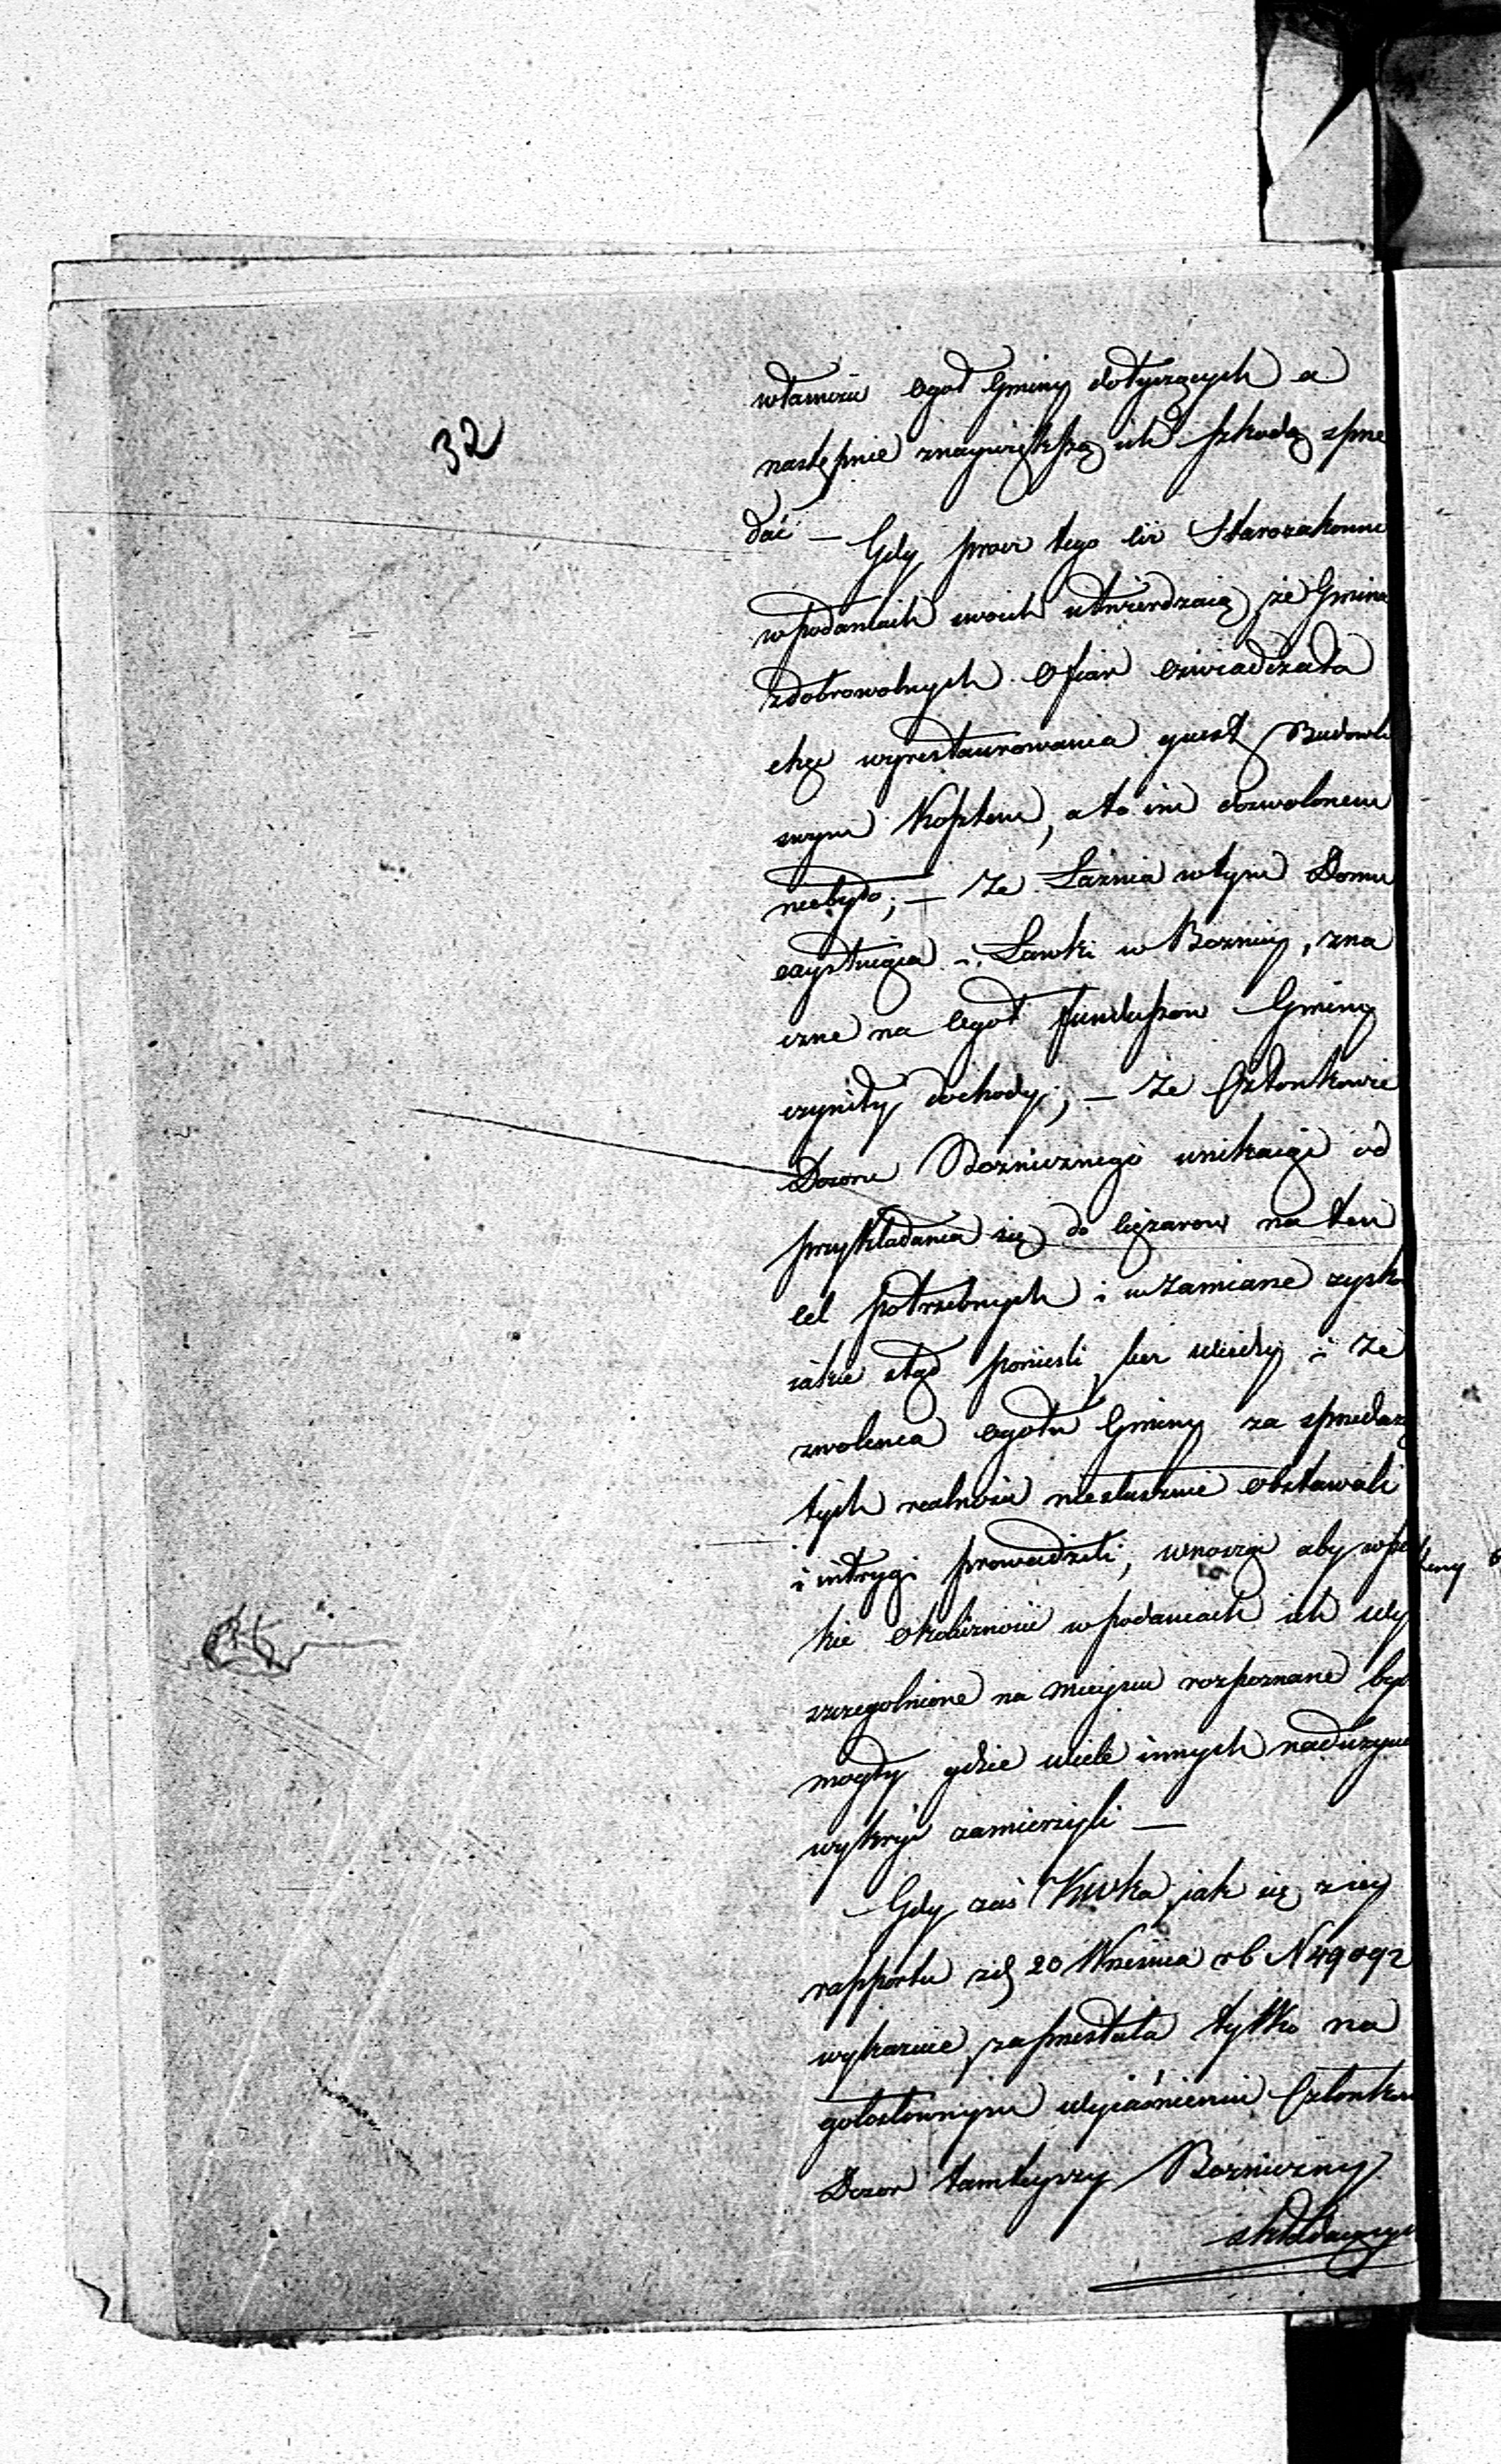 32
własności ogół Gminy dotyczących a
następnie znaywiększą ich szkodą sprze
dać — Gdy procz tego ciż Starozakonni
w podaniach swoich utwierdzaią, że Gmina
z dobrowolnych Ofiar oświadczała
chęć wyrestaurowania quest Budowli
swym Kosztem, a to im dozwolonem
niebyło; — Ze Łaznia w tym Domu
exystuiąca i Ławki w Boznicy, zna
czne na Ogół funduszow Gminy
czyniły dochody; — że Członkowie
Dozoru Boznicznego unikaiąc od
przykładania się do ciężarow na ten
cel potrzebnych i w zamianie zysko
iakie stąd ponieśli, bez wiedzy i ze
zwolenia ogołu Gminy za sprzedarzą
tych realnosci niesłusznie obstawali
i intrygi prowadzili, wnosząc aby wszy
kie okoliczności w podaniach ich wy
szczegolnione na mieyscu rozpoznane być
mogły gdzie wiele innych nadużyć
wykryć zamierzyli —
Gdy zaś jak się z iey
rapportu z d. 20 Września r b N 49092
wykazuie, zaprzestała tylko na
gołosłownym wyiaśnieniu Członkow
Dozor tamteyszy Bozniczny
składaiących